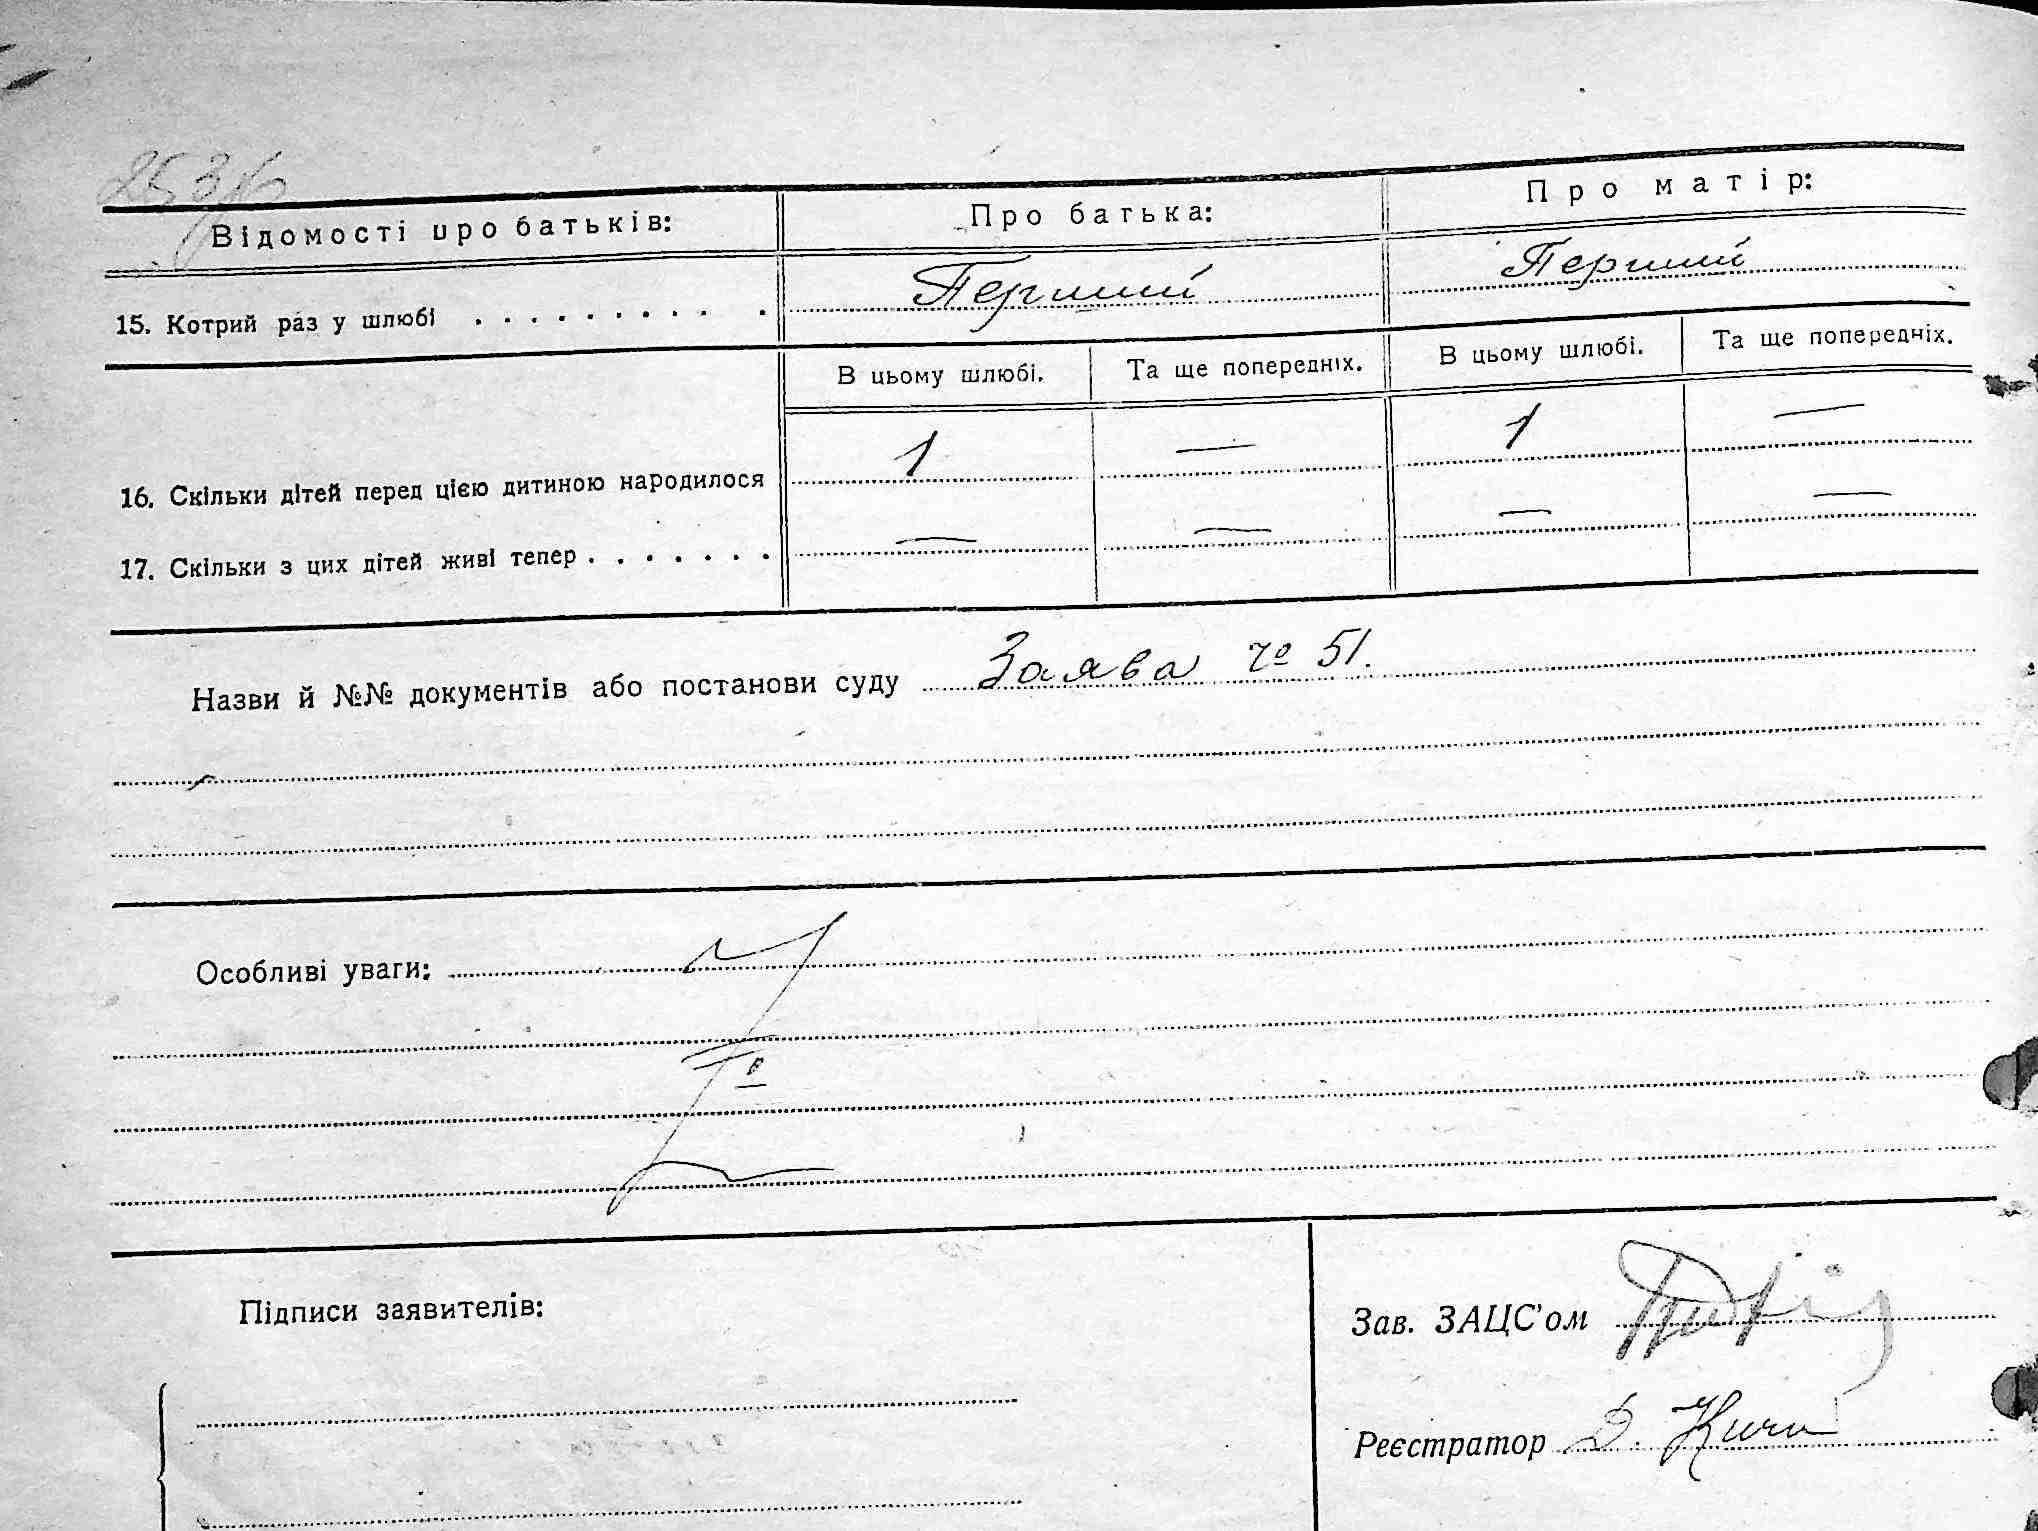 Відомості про батьків: Про батька: Про матір:
15. Котрий раз у шлюбі . . . . . . . . . . . Перший Перший
В цьому шлюбі. Та ще попередніх. В цьому шлюбі. Та ще попередніх.
16. Скільки дітей перед цією дитиною народилося 1 — 1 —
17. Скільки з цих дітей живі тепер . . . . . . . — — — —
Назви й №№ документів або постанови суду Заява № 51.
Особливі уваги:
Підписи заявителів:
Зав. ЗАЦС'ом
Реєстратор Д.